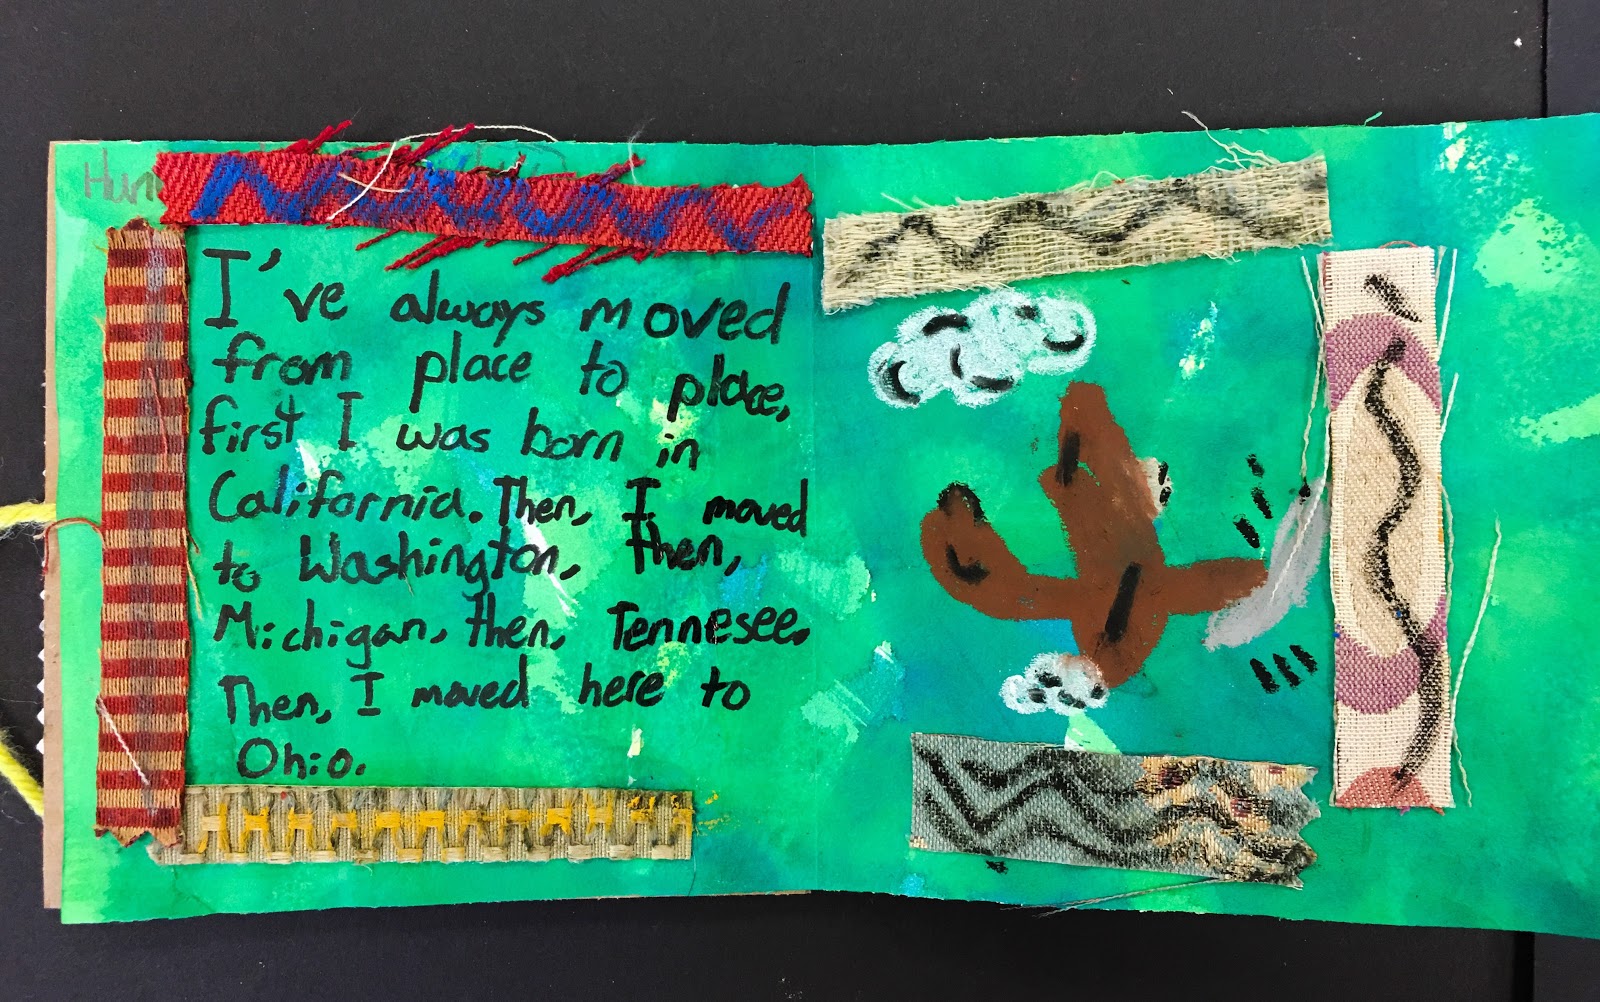 I've always moved
from place to place,
first I was born in
California. Then, I moved
to Washington, then,
Michigan, then, Tennesee.
Then, I moved here to
Ohio.